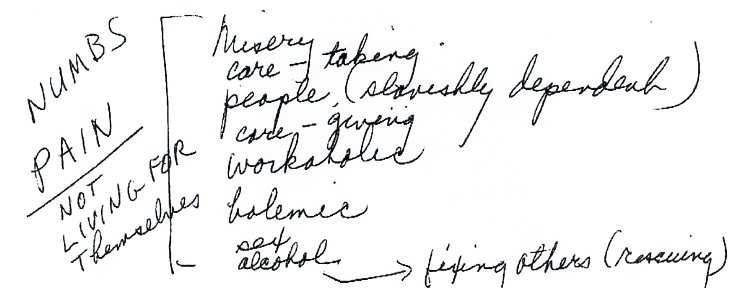 NUMBS
PAIN
NOT
LIVING FOR
Themselves
Misery
care-taking
people (slavishly dependent)
care-giving
workaholic
bolemic
sex
alcohol → fixing others (rescuing)